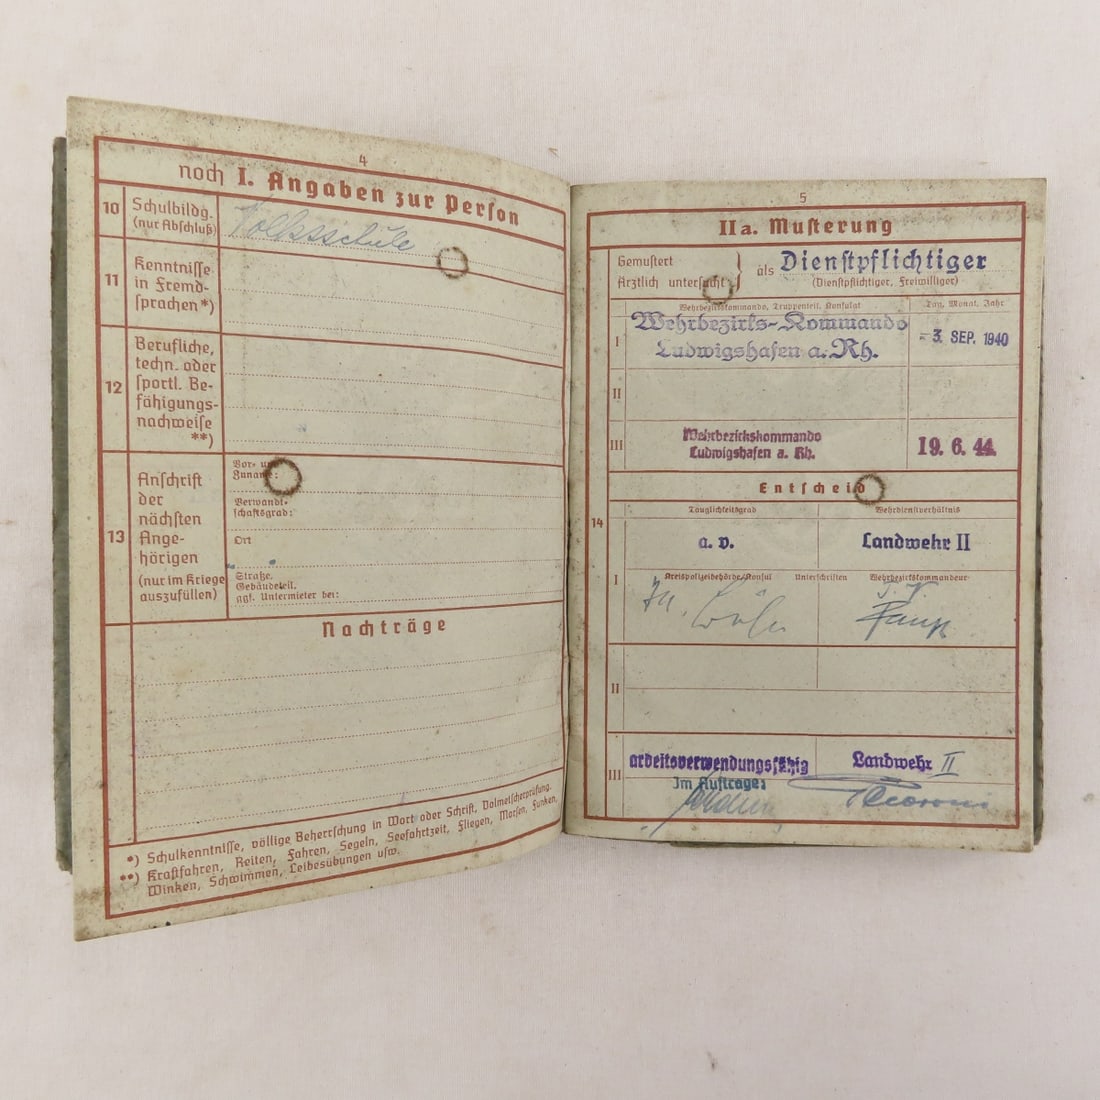 4
noch I. Angaben zur Person
10
Schulbildg.
(nur Abschluß)
Volksschule
11
Kenntnisse
in Fremd-
sprachen *)
12
Berufliche,
techn. oder
sportl. Be-
fähigungs-
nachweise
**)
13
Anschrift
der
nächsten
Ange-
hörigen
(nur im Kriege
auszufüllen)
Vor- und
Zuname:
Verwandt-
schaftsgrad:
Ort
Straße,
Gebäudeteil,
ggf. Untermieter bei:
Nachträge
*) Schulkenntnisse, völlige Beherrschung in Wort oder Schrift, Dolmetscherprüfung.
**) Kraftfahren, Reiten, Fahren, Segeln, Seefahrtzeit, Fliegen, Morsen, Funken,
Winken, Schwimmen, Leibesübungen usw.
5
IIa. Musterung
Gemustert
Ärztlich untersucht
als Dienstpflichtiger
(Dienstpflichtiger, Freiwilliger)
Wehrbezirkskommando, Truppenteil, Konsulat
Tag, Monat, Jahr
I
Wehrbezirks-Kommando
Ludwigshafen a. Rh.
- 3. SEP. 1940
II
III
Wehrbezirkskommando
Ludwigshafen a. Rh.
19. 6. 44
Entscheid
14
Tauglichkeitsgrad
Wehrdienstverhältnis
a. v.
Landwehr II
I
Kreispolizeibehörde/Konsul
Unterschriften
Wehrbezirkskommandeur
II
III
arbeitsverwendungsfähig
Landwehr II
Im Auftrage: